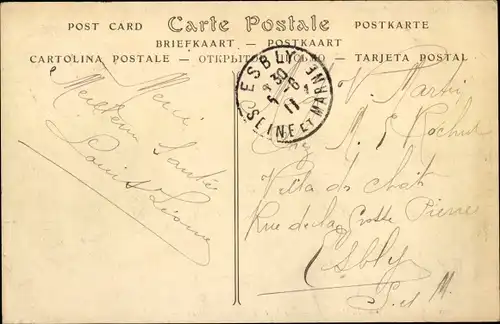 POST CARD Carte Postale POSTKARTE
BRIEFKAART — POSTKAART
CARTOLINA POSTALE — ОТКРЫТОЕ ПИСЬМО — TARJETA POSTAL
ESBLY
SEINE ET MARNE
11
Merci
Meilleure Santé
Louis
V. Martin
Chez M. E
Villa du
Rue de la Grosse Pierre
Esbly
S. et M.